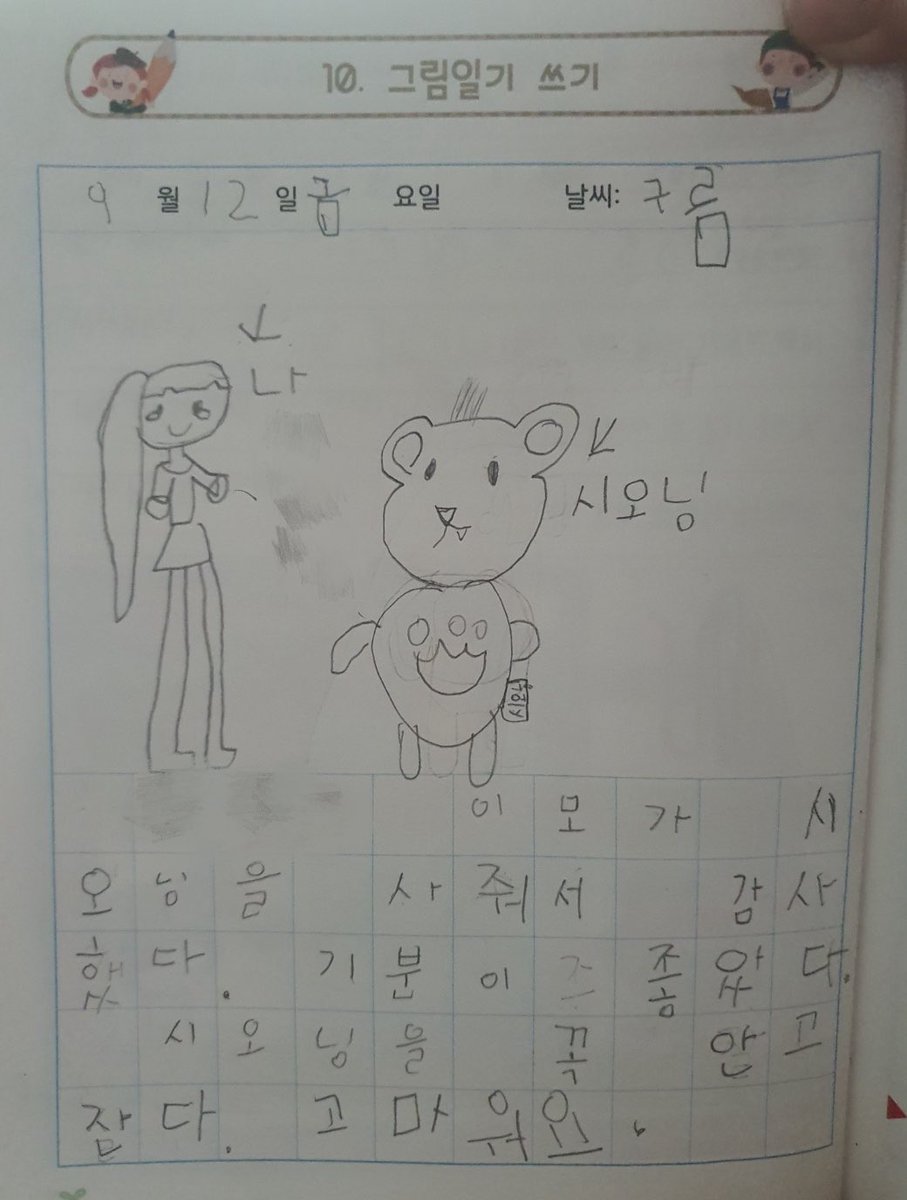 10. 그림일기 쓰기
9 월 12 일 금 요일 날씨: 구름
나
시오닝
이모가 시
오닝을 사줘서 감사
했다. 기분이 좋았다.
시오닝을 꼭 안고
잡다. 고마워요.